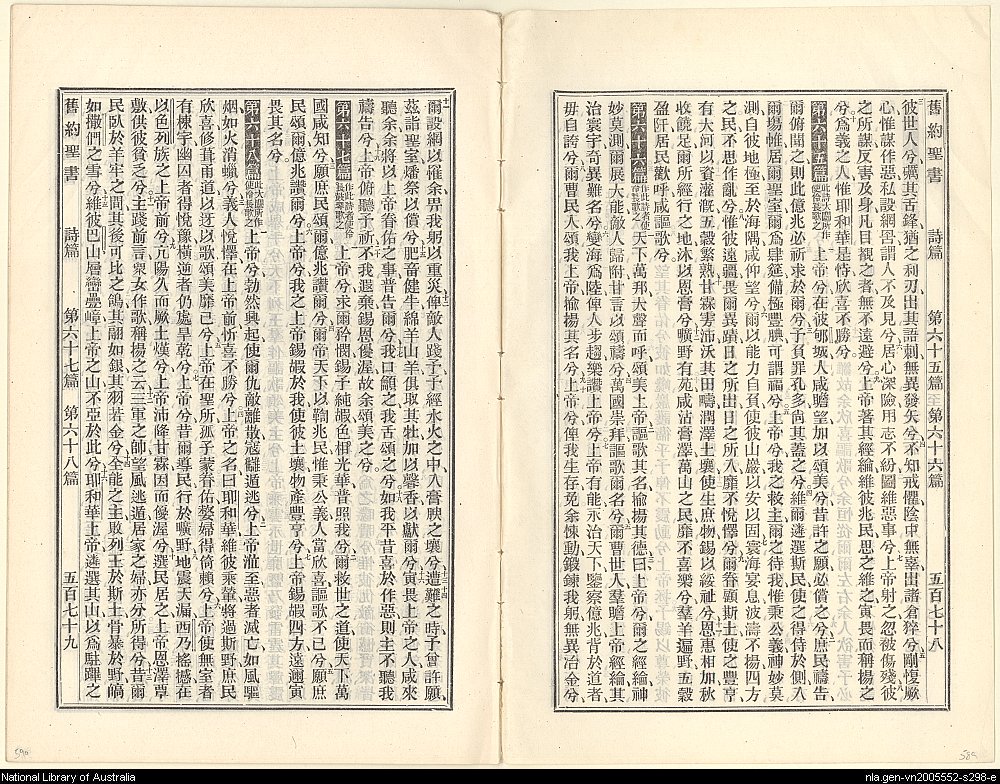 舊約聖書 詩篇 第六十五篇至第六十六篇 五百七十八
彼世人兮礪其舌鋒猶之利刃出其語刺無異發矢兮不知戒懼陰中無辜出諸倉猝兮剛愎厥
心惟謀作惡私設網罟謂人不及見兮居心深險用志不紛圖維惡事兮上帝射之忽被傷殘彼
之所謀反害及身凡目覩之者無不遠避兮上帝著其經綸維彼兆民思之維之寅畏而稱揚之
兮爲義之人惟耶和華是恃欣喜不勝兮
第六十五篇 此詩大闢所作使伶長歌之 上帝兮在彼郇城人咸瞻望加以頌美兮昔許之願必償之兮庶民禱告
爾俯聞之則此億兆必祈求於爾兮予負罪孔多尚其蓋之兮維爾遴選斯民使之得侍於側入
爾場帷居爾聖室爾爲肆筵備極豐腆可謂福兮上帝兮我之救主爾之待我惟秉公義神妙莫
測自彼地極至於海隅咸仰望兮爾以能力自負使彼山巖以安以固寰海宴息波濤不揚四方
之民不思作亂兮惟彼遠疆畏爾異蹟日之所出日之所入靡不悅懌兮爾眷顧斯土使之豐亨
有大河以資灌漑五穀繁熟甘霖雱沛沃其田疇潤澤土壤使生庶物錫以綏祉兮恩惠相加秋
收饒足爾所經行之地沐以恩膏兮曠野有苑咸沾膏澤萬山之民靡不喜樂兮羣羊遍野五穀
盈阡居民歡呼咸謳歌兮
第六十六篇 作此詩者使伶長鼓瑟歌之 天下萬邦大聲而呼頌美上帝謳歌其名揄揚其德曰上帝兮爾之經綸神
妙莫測爾展大能敵人歸附甘言以頌禱兮萬國崇拜謳歌爾名兮爾曹世人羣瞻上帝經綸其
治寰宇奇異難名兮變海爲陸俾人步趨樂讚上帝兮上帝有能永治天下鑒察億兆背於道者
毋自誇兮爾曹民人頌我上帝揄揚其名兮上帝兮俾我生存免余悚動鍛鍊我躬無異冶金兮
爾設網以惟余畀我躬以重災俾敵人踐予予經水火之中入膏腴之壤兮遭難之時予嘗許願
茲詣聖室燔祭以償兮肥畜健牛綿羊山羊俱取其牡加以馨香以獻爾兮寅畏上帝之人咸來
聽余余將以上帝眷佑之事普告爾兮我口籲之我舌頌之兮如我平昔喜於作惡則主不聽我
禱告兮上帝俯聽予祈不我遐棄錫恩優渥故余頌美之兮
第六十七篇 作此詩者使伶長鼓琴歌之 上帝兮永爾矜憫錫予純嘏色相光華普照我兮爾救世之道使天下萬
國咸知兮願庶民頌爾億兆讚爾兮爾帝天下以鞫兆民惟秉公義人當欣喜謳歌不已兮願庶
民頌爾億兆讚爾兮上帝兮我之上帝錫嘏於我使彼土壤物產豐亨兮上帝錫嘏四方遠邇寅
畏其名兮
第六十八篇 此大闢所作使伶長歌之 上帝兮勃然興起使爾仇敵離散寇讎遁逃兮上帝涖至惡者滅亡如風驅
烟如火消蠟兮義人悅懌在上帝前忻喜不勝兮上帝之名曰耶和華維彼乘輦將過斯野庶民
欣喜修葺甬道以迓以歌頌美靡已兮上帝在聖所孤子蒙眷佑嫠婦得倚賴兮上帝使無室者
有棟宇幽囚者得悅豫橫逆者仍處旱乾兮上帝兮昔爾導民行於曠野地震天漏西乃搖撼在
以色列族之上帝前兮亢陽久而厥土熯兮上帝沛降甘霖因而優渥兮選民居之上帝恩澤覃
敷供彼貧乏兮主踐前言衆女作歌稱揚之云三軍之帥望風逃遁居家之婦亦分所得兮昔爾
民臥於羊牢之間其後可比之鴿其翮如銀其羽若金兮全能之主敗列王於斯土骨暴於野皜
如撒們之雪兮維彼巴山層巒疊嶂上帝之山不亞於此兮耶和華上帝遴選其山以爲駐蹕之
舊約聖書 詩篇 第六十七篇 第六十八篇 五百七十九
590
589
National Library of Australia
nla.gen-vn2005552-s298-e